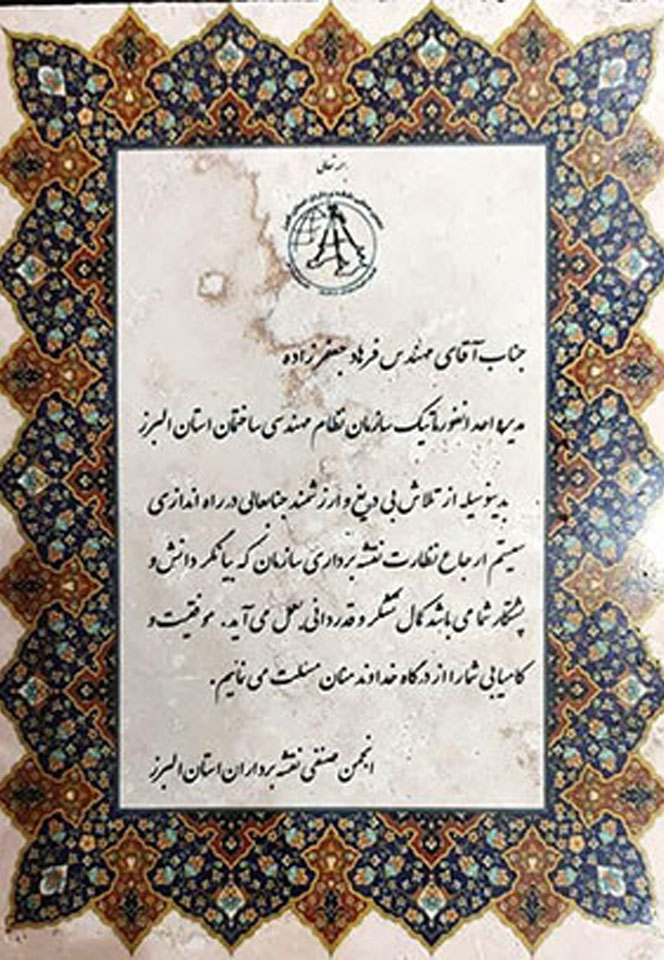 بسمه تعالی
جناب آقای مهندس فرهاد جعفرزاده
مدیر واحد انفورماتیک سازمان نظام مهندسی ساختمان استان البرز
بدینوسیله از تلاش بی دریغ و ارزشمند جنابعالی در راه اندازی
سیستم ارجاع نظارت نقشه برداری سازمان که بیانگر دانش و
پشتکار شما می باشد کمال تشکر و قدردانی بعمل می آید. موفقیت و
کامیابی شما را از درگاه خداوند منان مسئلت می نمایم.
انجمن صنفی نقشه برداران استان البرز